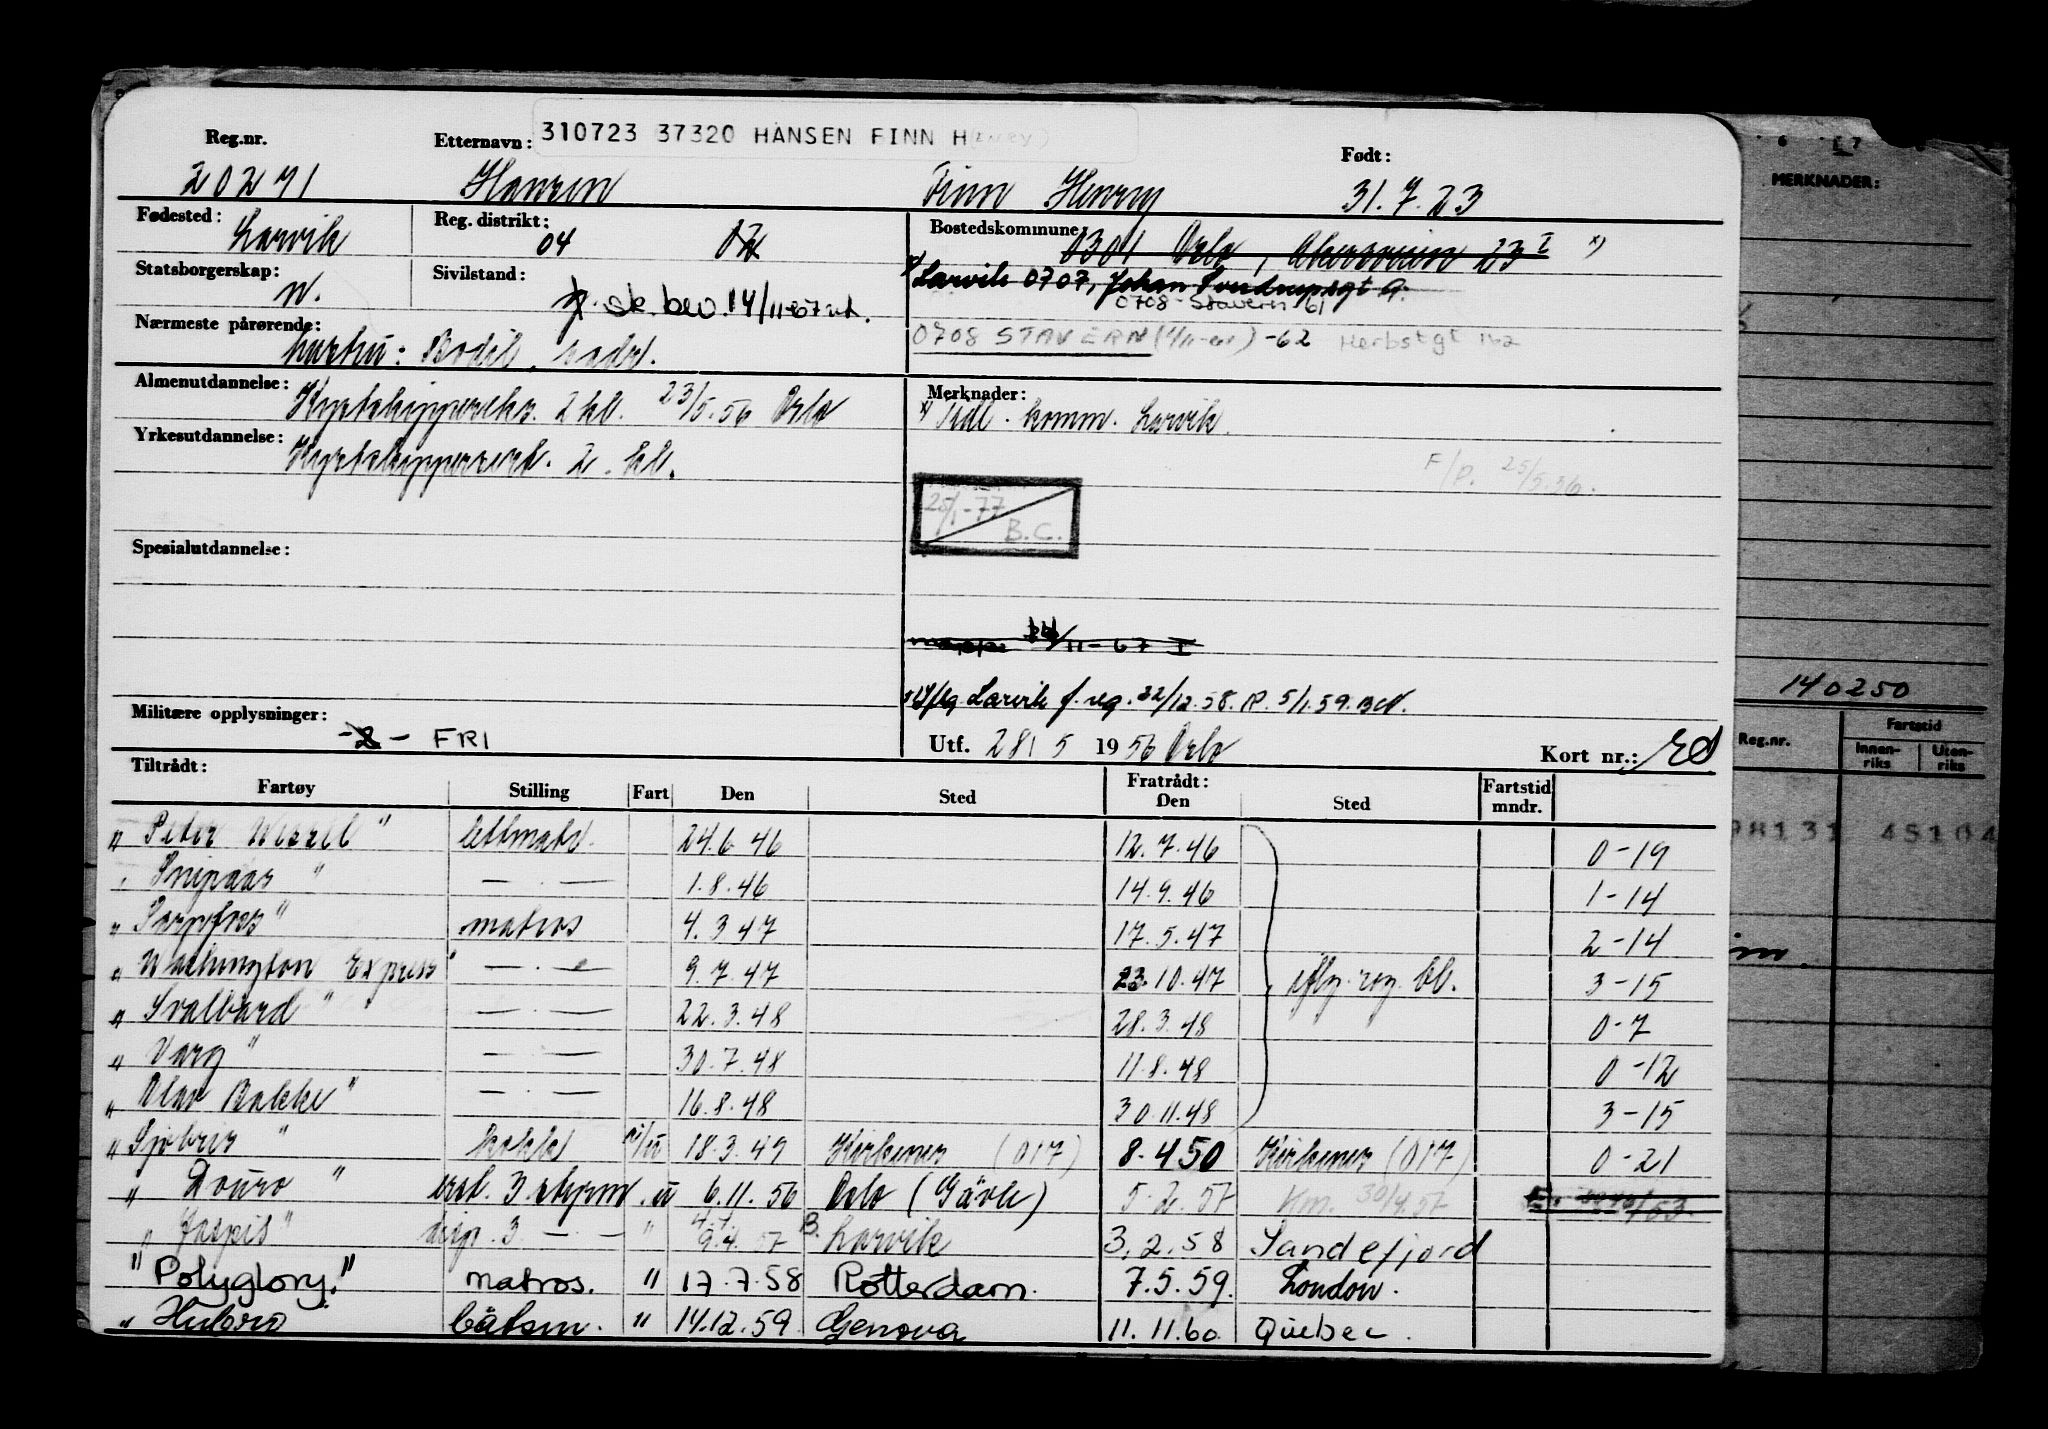 Reg.nr. Etternavn: 310723 37320 HANSEN FINN H(ENRY) Født:
20271 Hansen Finn Henry 31.7.23
Fødested: Larvik Reg. distrikt: 04 Bostedskommune: 0301 Oslo, Akersveien 23 I x)
Statsborgerskap: n. Sivilstand: g. sk. bev. 14/11-67 x) Larvik 0707, Johan Sverdrupsgt 9.
0708 Stavern 61
Nærmeste pårørende: hustru: Bodil, s. adr. 0708 STAVERN -62 Herbstgt 162
Almenutdannelse: Kystskippereks. 2 kl. 23/5.56 Oslo Merknader: x) Tidl. komm. Larvik.
Yrkesutdannelse: Kystskippersert. 2. kl. F/P. 25/5.56.
25/1-77 B.C.
Spesialutdannelse:
mappe 14/11-67 I
Larvik f. reg. 22/12.58. P. 5/1.59.
Militære opplysninger: -2- FRI Utf. 28/5 1956 Oslo Kort nr.:
Tiltrådt: Fratrådt:
Fartøy Stilling Fart Den Sted Den Sted Fartstid mndr.
" Peter Wessel " lettmatr. 24.6.46 12.7.46 0-19
" Snipaas " — . — 1.8.46 14.9.46 1-14
" Sarpfoss " matros 4.3.47 17.5.47 2-14
" Washington Express " — . — 9.7.47 23.10.47 iflg. reg. bl. 3-15
" Svalbard " — . — 22.3.48 28.3.48 0-7
" Varg " — . — 30.7.48 11.8.48 0-12
" Olav Bakke " — . — 16.8.48 30.11.48 3-15
" " 18.3.49 Kirkenes (017) 8.4 50 Kirkenes (017) 0-21
" Douro " 3. u 6.11.56 Oslo (Gävle) 5.2.57 Km. 30/4.57
" Jaspis " disp. 3. — . — " 9.4.57 Larvik 3.2.58 Sandefjord
" Polyglory. " matros. " 17.7.58 Rotterdam. 7.5.59. London.
" Hubro båtsm. " 14.12.59. Genova 11.11.60 Quebec.
6 7
MERKNADER:
140250
Reg.nr. Fartstid
Innen-riks Uten-riks
98131 45104